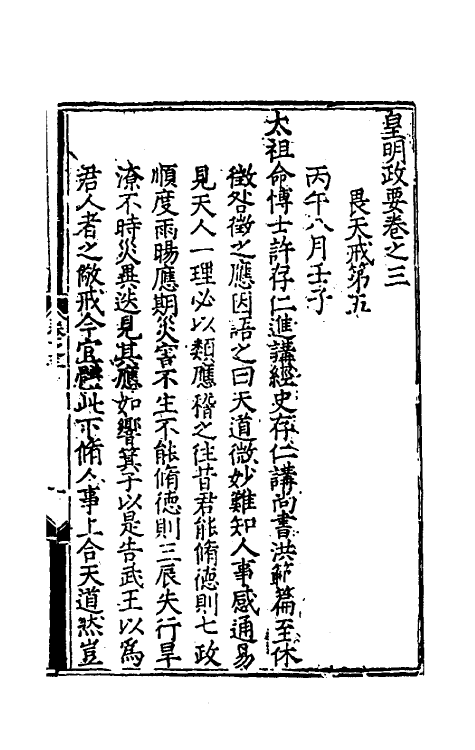 皇明政要卷之三
畏天戒第五
丙午八月壬子
太祖命博士許存仁進講經史存仁講尚書洪範篇至休
徵咎徵之應因語之曰天道微妙難知人事感通易
見天人一理必以類應稽之往昔君能脩德則七政
順度雨暘應期災害不生不能脩德則三辰失行旱
潦不時災異迭見其應如響箕子以是告武王以為
君人者之儆戒今宜體此下脩人事上合天道然豈